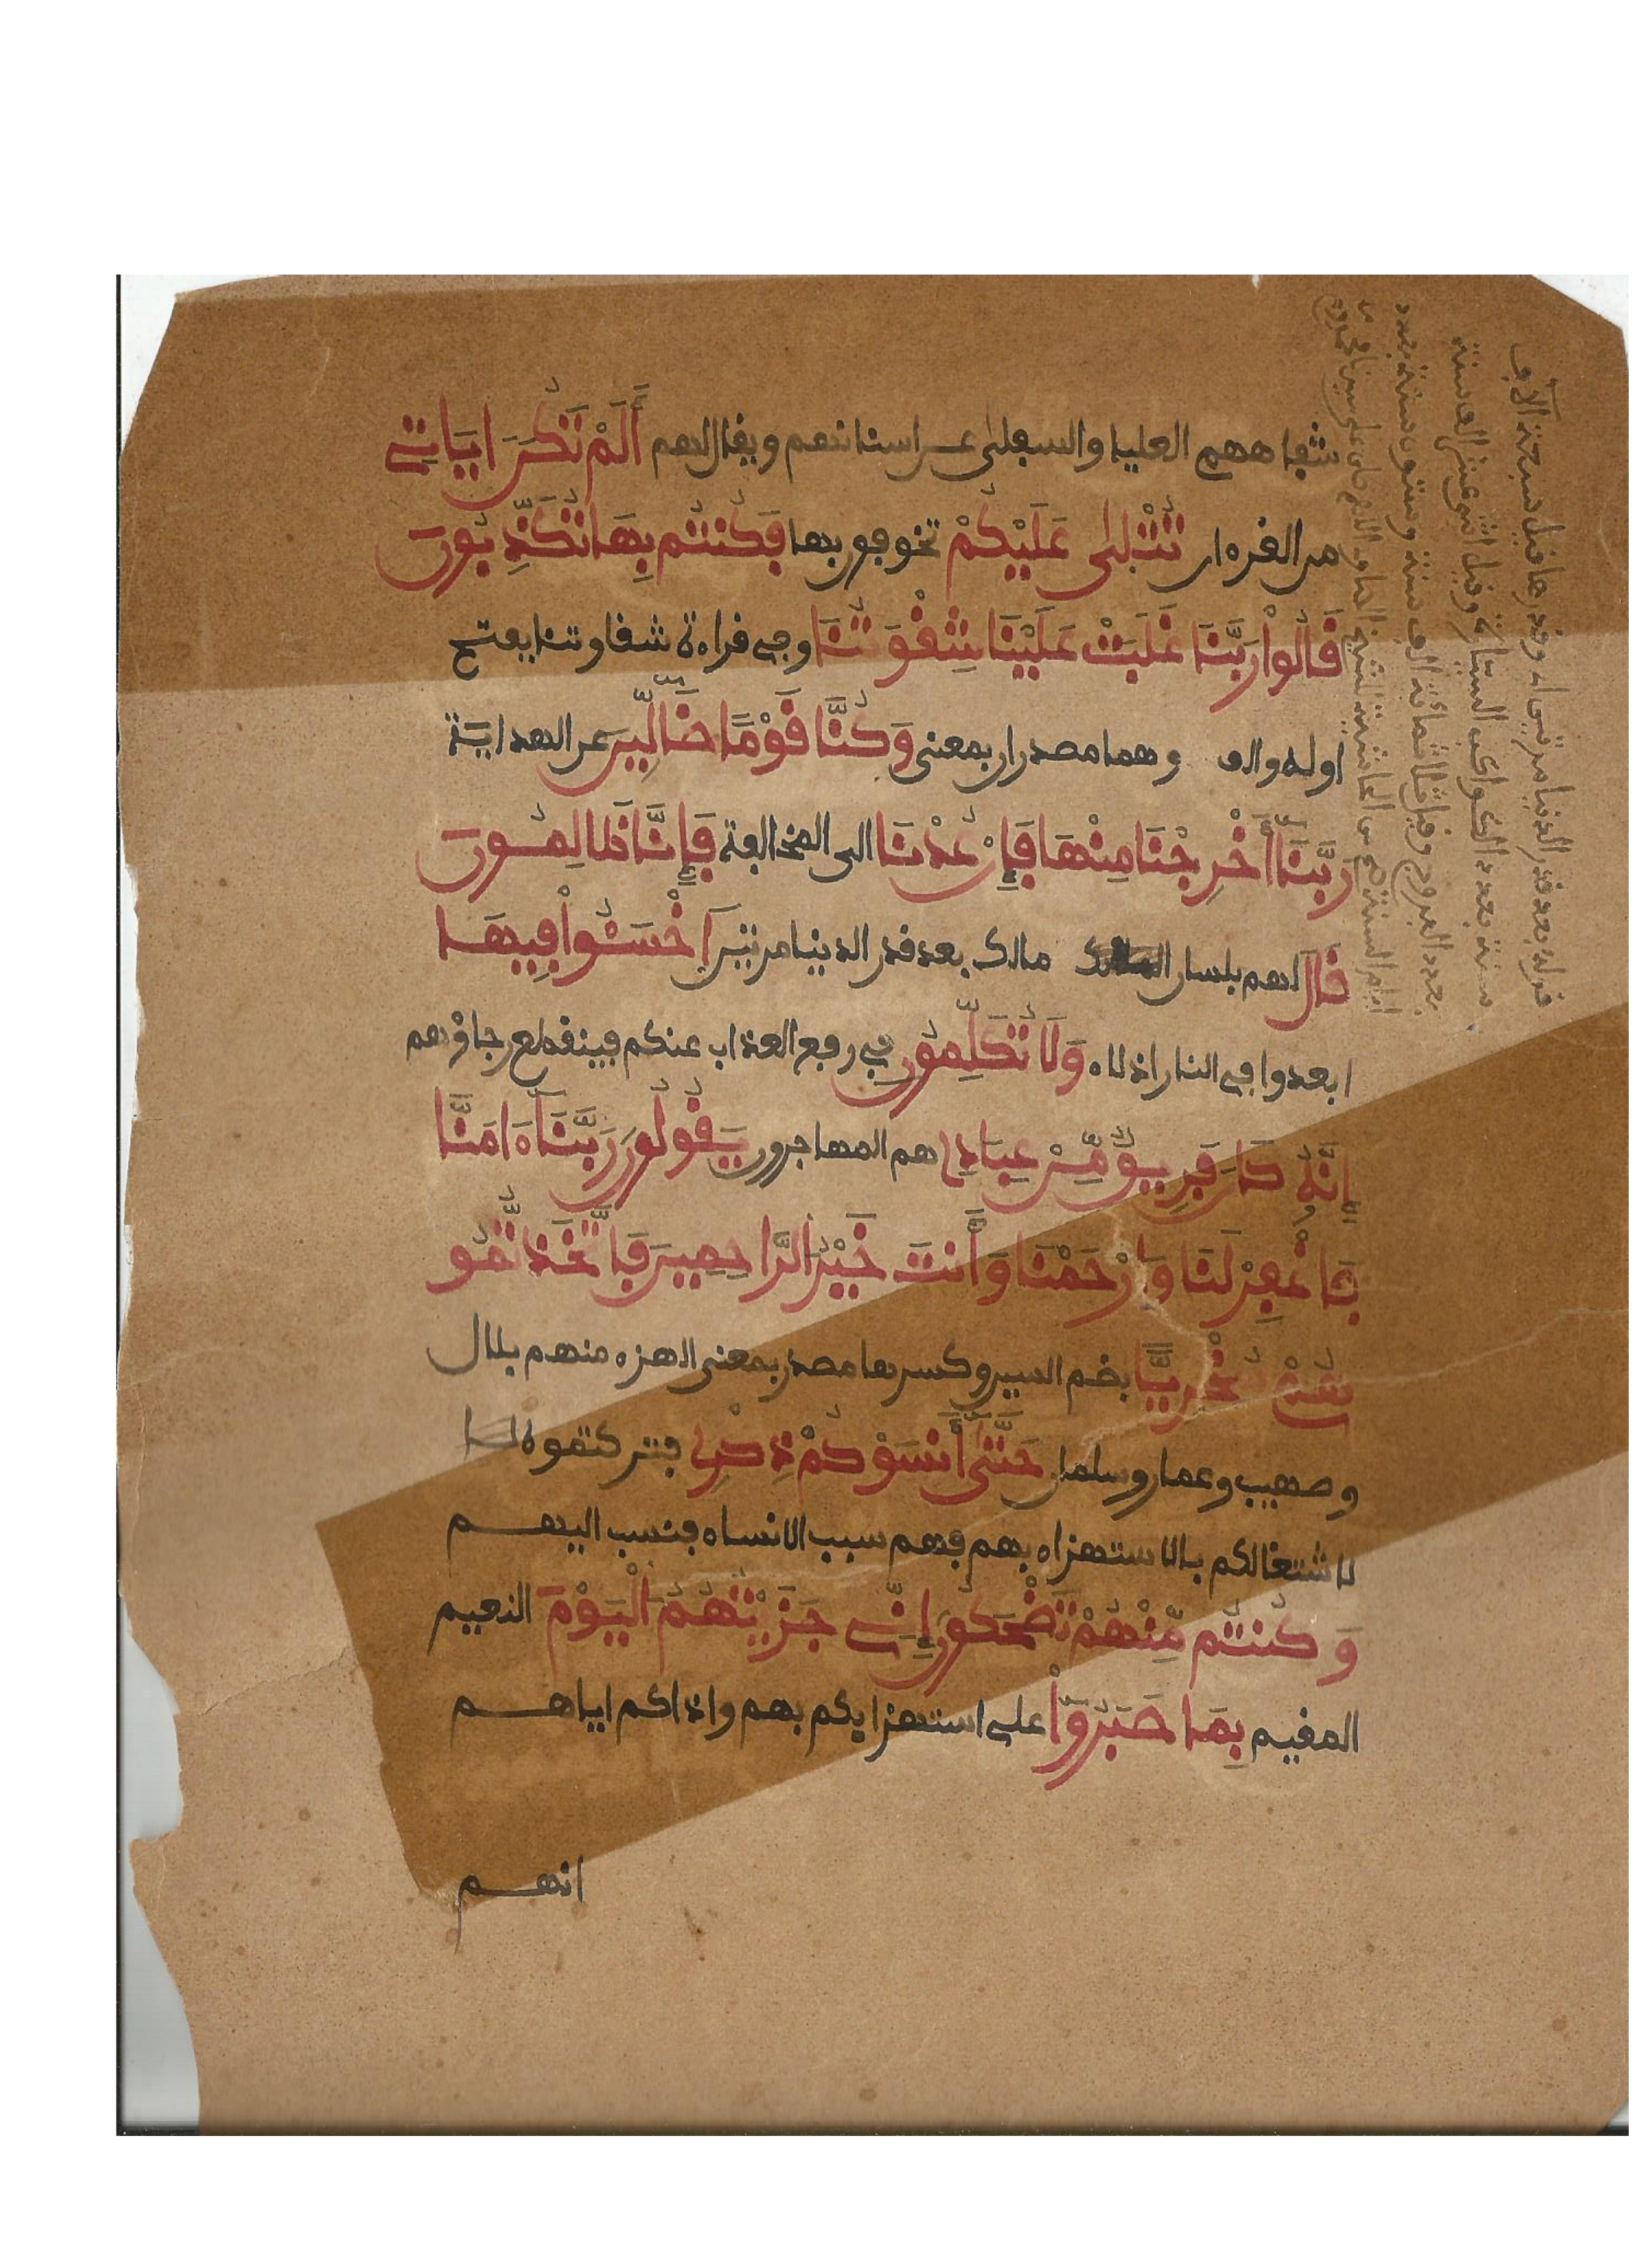 شفاههم العليا والسفلى عن اسنانهم ويقال لهم أَلَمْ تَكُنَ ايَاتِے
من القرءان تُتْلىٰ عَلَيْكُمْ تخوفون بها فَكُنتُم بِهَا تُكَذِّبُونَ
قَالُواْ رَبَّنَا غَلَبَتْ عَلَيْنَا شِقْوَتُنَا وفي قراءة شقاوتنا بفتح
اوله والف وهما مصدران بمعنى وَكُنَّا قَوْمًا ضَآلِّينَ عن الهداية
رَبَّنَآ أَخْرِجْنَا مِنْهَا فَإِنْ عُدْنَا الى المخالفة فَإِنَّا ظَالِمُونَ
قَالَ لهم بلسان مالك بعد قدر الدنيا مرتين اَخْسَـُٔواْ فِيهَا
ابعدوا في النار اذلاء وَلَا تُكَلِّمُونِ في رفع العذاب عنكم فينقطع رجاؤهم
إِنَّهُۥ كَانَ فَرِيقٌ مِّنْ عِبَادِے هم المهاجرون يَقُولُونَ رَبَّنَآ ءَامَنَّا
فَاغْفِرْ لَنَا وَارْحَمْنَا وَأَنتَ خَيْرُ الرَّاحِمِينَ فَاتَّخَذتُّمُو
هُمْ سُخْرِيًّا بضم السين وكسرها مصدر بمعنى الهزء منهم بلال
وصهيب وعمار وسلمان حَتَّىٰٓ أَنسَوْكُمْ ذِكْرِے فتركتموه
لاشتغالكم بالاستهزاء بهم فهم سبب الانساء فنسب اليهم
وَكُنتُم مِّنْهُمْ تَضْحَكُونَ إِنِّے جَزَيْتُهُمُ الْيَوْمَ النعيم
المقيم بِمَا صَبَرُوٓاْ على استهزايكم بهم واذاكم اياهم
انهم
قوله بعد قدر الدنيا مرتين اه وقدرها قيل سبعة آلاف
سنة بعدد الكواكب السيارة وقيل اثنى عشر الف سنة
بعدد البروج وقيل ثلثمائة الف سنة وستون سنة بعدد
ايام السنة